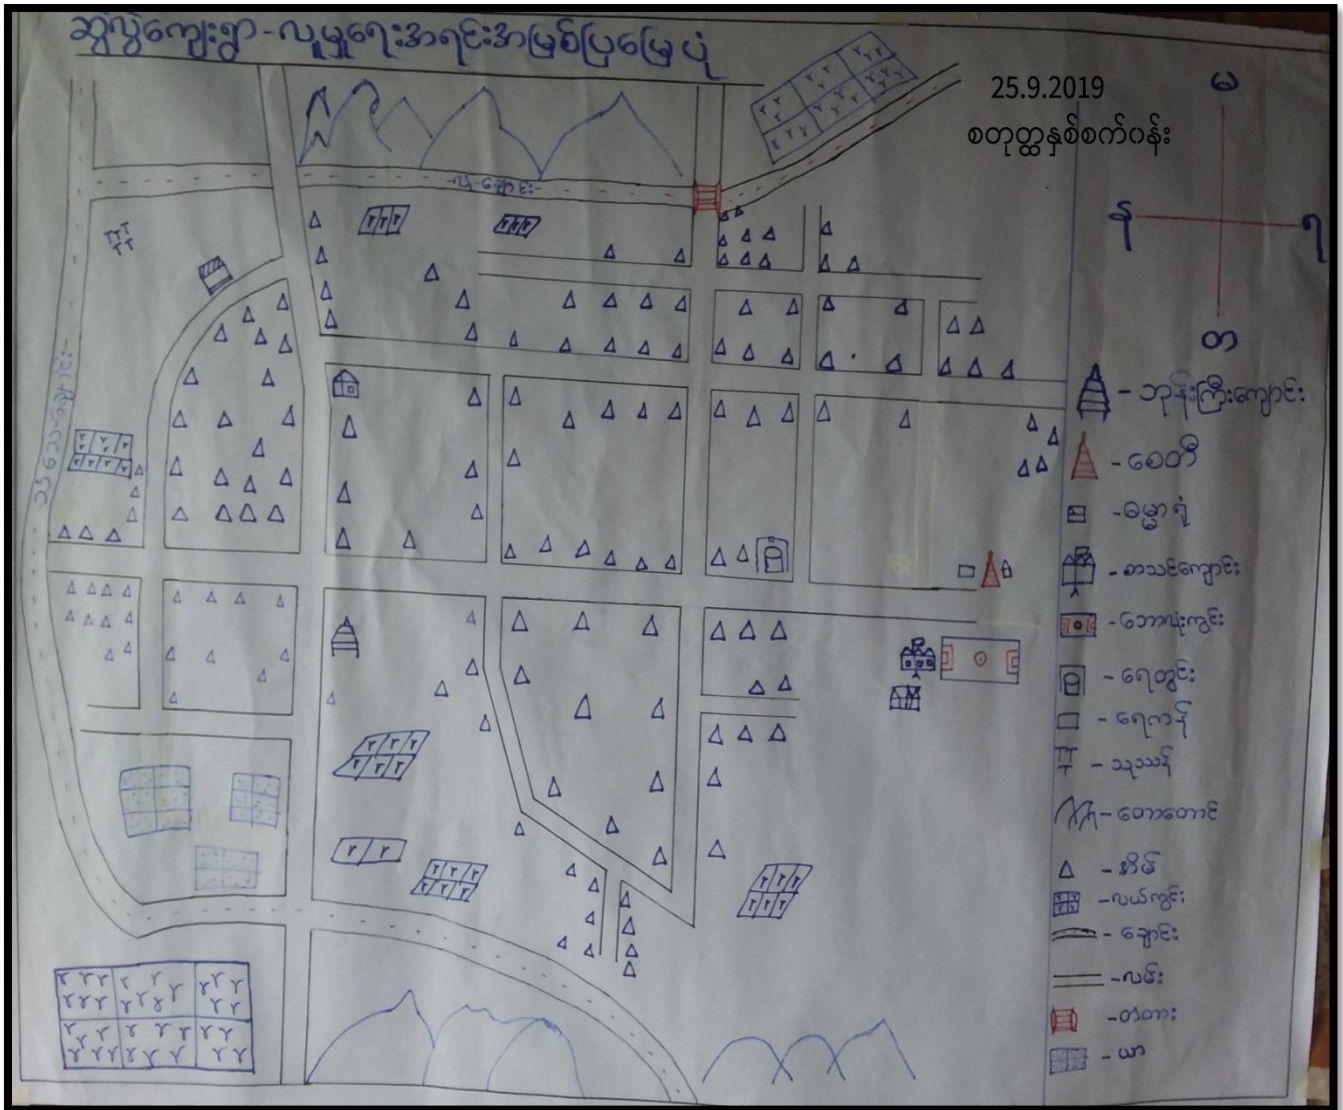 ဆွဲလွဲကျေးရွာ - လူမှုရေးအရင်းအမြစ်ပြမြေပုံ
25.9.2019
စတုတ္ထနှစ်စက်ဝန်း
မ
န
ရ
တ
- ဘုန်းကြီးကျောင်း
- စေတီ
- ဓမ္မာရုံ
- စာသင်ကျောင်း
- ဘောလုံးကွင်း
- ရေတွင်း
- ရေကန်
- သုဿန်
- တောတောင်
- အိမ်
- လယ်ကွင်း
- ချောင်း
- လမ်း
- တံတား
- ယာ